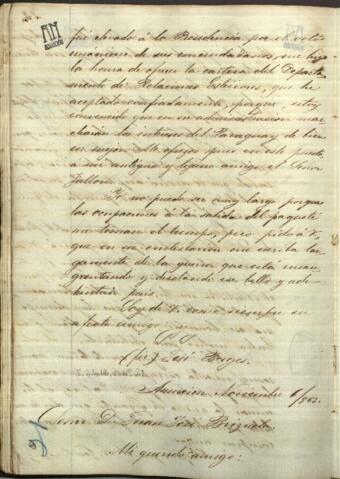 fué elevado á la Presidencia por el voto
unánime de sus conciudadanos, me hizo
la honra de ofrecer la cartera del Departa-
miento de Relaciones Esteriores, que he
aceptado confiadamente, porque, estoy
convencido que en su administracion mar-
charán los intereses del Paraguay de bien
en mejor. Me ofrezco pues en este puesto
á mi antiguo y lejano amigo el Señor
Yo no puedo ser muy largo porque
las ocupaciones á la salida del paquete
me toman el tiempo, pero pido á V.
que en su contestacion me escriba lar-
gamente de la guerra que está ensan-
grentando y desolando ese bello y ade-
lantado pais.
Soy de V. como siempre su
afecto amigo
(fir.) José Berges.
Asuncion Noviembre 6/862.
Señor D. Juan José
Mi querido amigo: